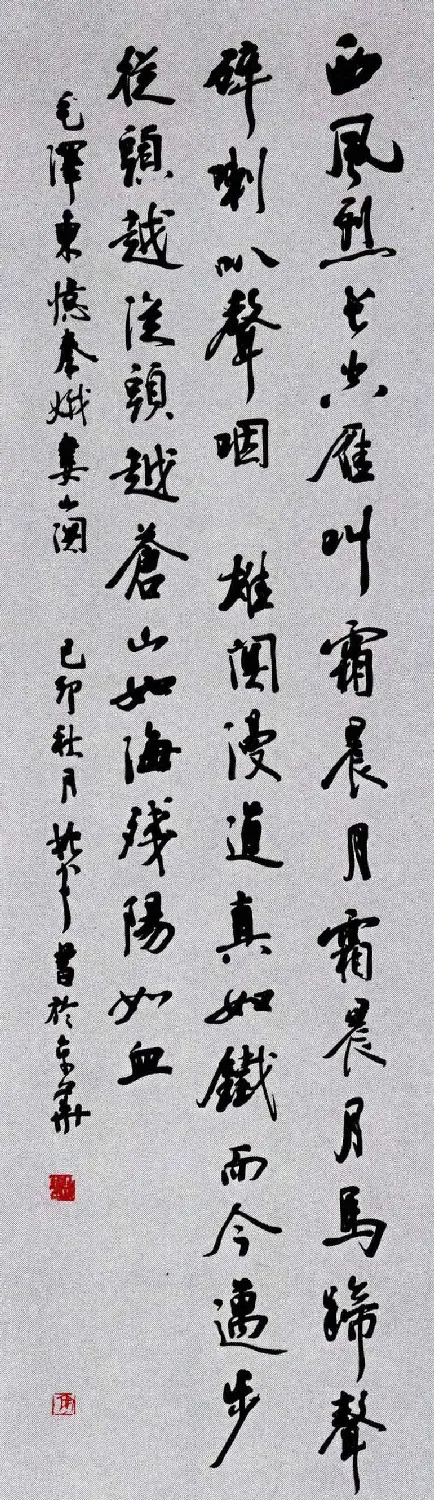 西風烈長空雁叫霜晨月霜晨月馬蹄聲
碎喇叭聲咽 雄關漫道真如鐵而今邁步
從頭越從頭越蒼山如海残陽如血
毛澤東憶秦娥婁山關 己卯秋月 書於京華